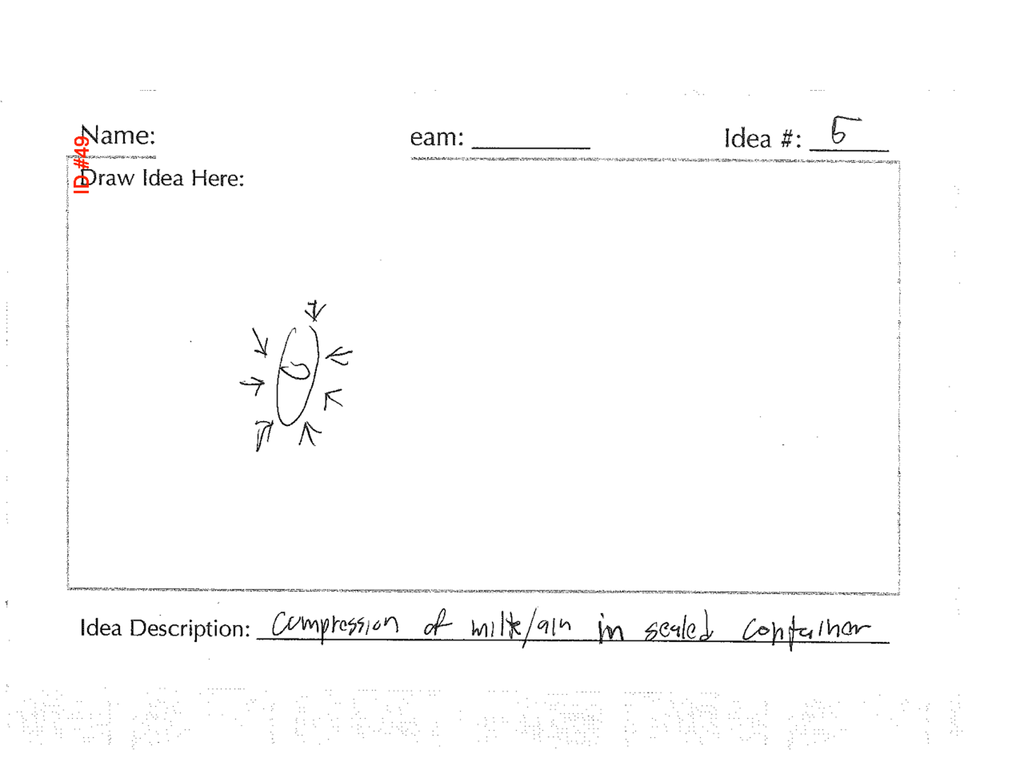 Name: eam: Idea #: 5
ID #49
Draw Idea Here:
Idea Description: compression of milk/air in sealed container